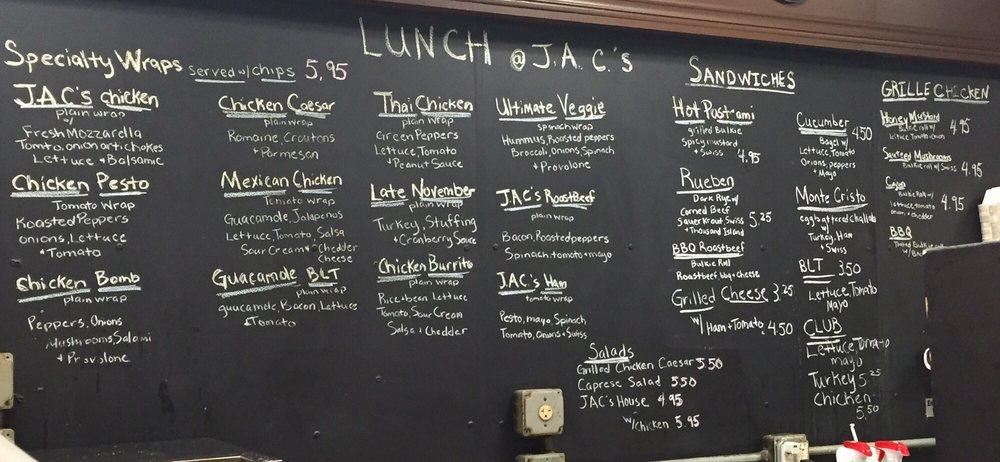 LUNCH @ J.A.C.'s
Specialty Wraps Served w/ chips 5.95
J.A.C's chicken
plain wrap
w/
Fresh Mozzarella
Tomato, onion artichokes
Lettuce + Balsamic
Chicken Pesto
Tomato Wrap
Roasted Peppers
onions, Lettuce
+ Tomato
Chicken Bomb
plain wrap
Peppers, Onions
Mushrooms, Salami
+ Provolone
Chicken Caesar
plain wrap
Romaine, Croutons
+ Parmesan
Mexican Chicken
Tomato wrap
Guacamole, Jalapenos
Lettuce, Tomato Salsa
Sour Cream + Chedder
Cheese
Guacamole BLT
plain wrap
guacamole, Bacon, Lettuce
+ Tomato
Thai Chicken
plain wrap
Green Peppers
Lettuce, Tomato
+ Peanut Sauce
Late November
plain wrap
Turkey, Stuffing
+ Cranberry Sauce
Chicken Burrito
plain wrap
Rice + bean Lettuce
Tomato, Sour Cream
Salsa + Chedder
Ultimate Veggie
spinach wrap
Hummus, Roasted peppers
Broccoli, Onions, Spinach
+ Provolone
JAC's Roast Beef
plain wrap
Bacon, Roasted peppers
Spinach, tomato + mayo
JAC's Ham
tomato wrap
Pesto, mayo, Spinach
Tomato, Onions + Swiss
Salads
Grilled Chicken Caesar 5.50
Caprese Salad 5.50
JAC's House 4.95
w/ chicken 5.95
SANDWICHES
Hot Pastrami
grilled Bulkie
Spicy mustard
+ Swiss 4.95
Rueben
Dark Rye w/
Corned Beef
Sauerkrout, Swiss 5.25
+ Thousand Island
BBQ Roastbeef
Bulkie Roll
Roastbeef bbq + cheese
Grilled Cheese 3.25
w/ Ham + Tomato 4.50
Cucumber 4.50
Bagel w/
Lettuce, Tomato
Onions, peppers
+ Mayo
Monte Cristo
egg battered challah
w/
Turkey, Ham
+ Swiss
BLT 3.50
Lettuce, Tomato
Mayo
CLUB
Lettuce, Tomato
mayo
Turkey 5.25
Chicken
5.50
GRILLE CHICKEN
Honey Mustard 4.95
Bulkie roll w/
lettuce, tomato + onion
Sauteed Mushrooms
Bulkie roll w/ Swiss 4.95
Cajun
Bulkie Roll w/
lettuce, tomato 4.95
onion + chedder
BBQ
Bulkie Roll